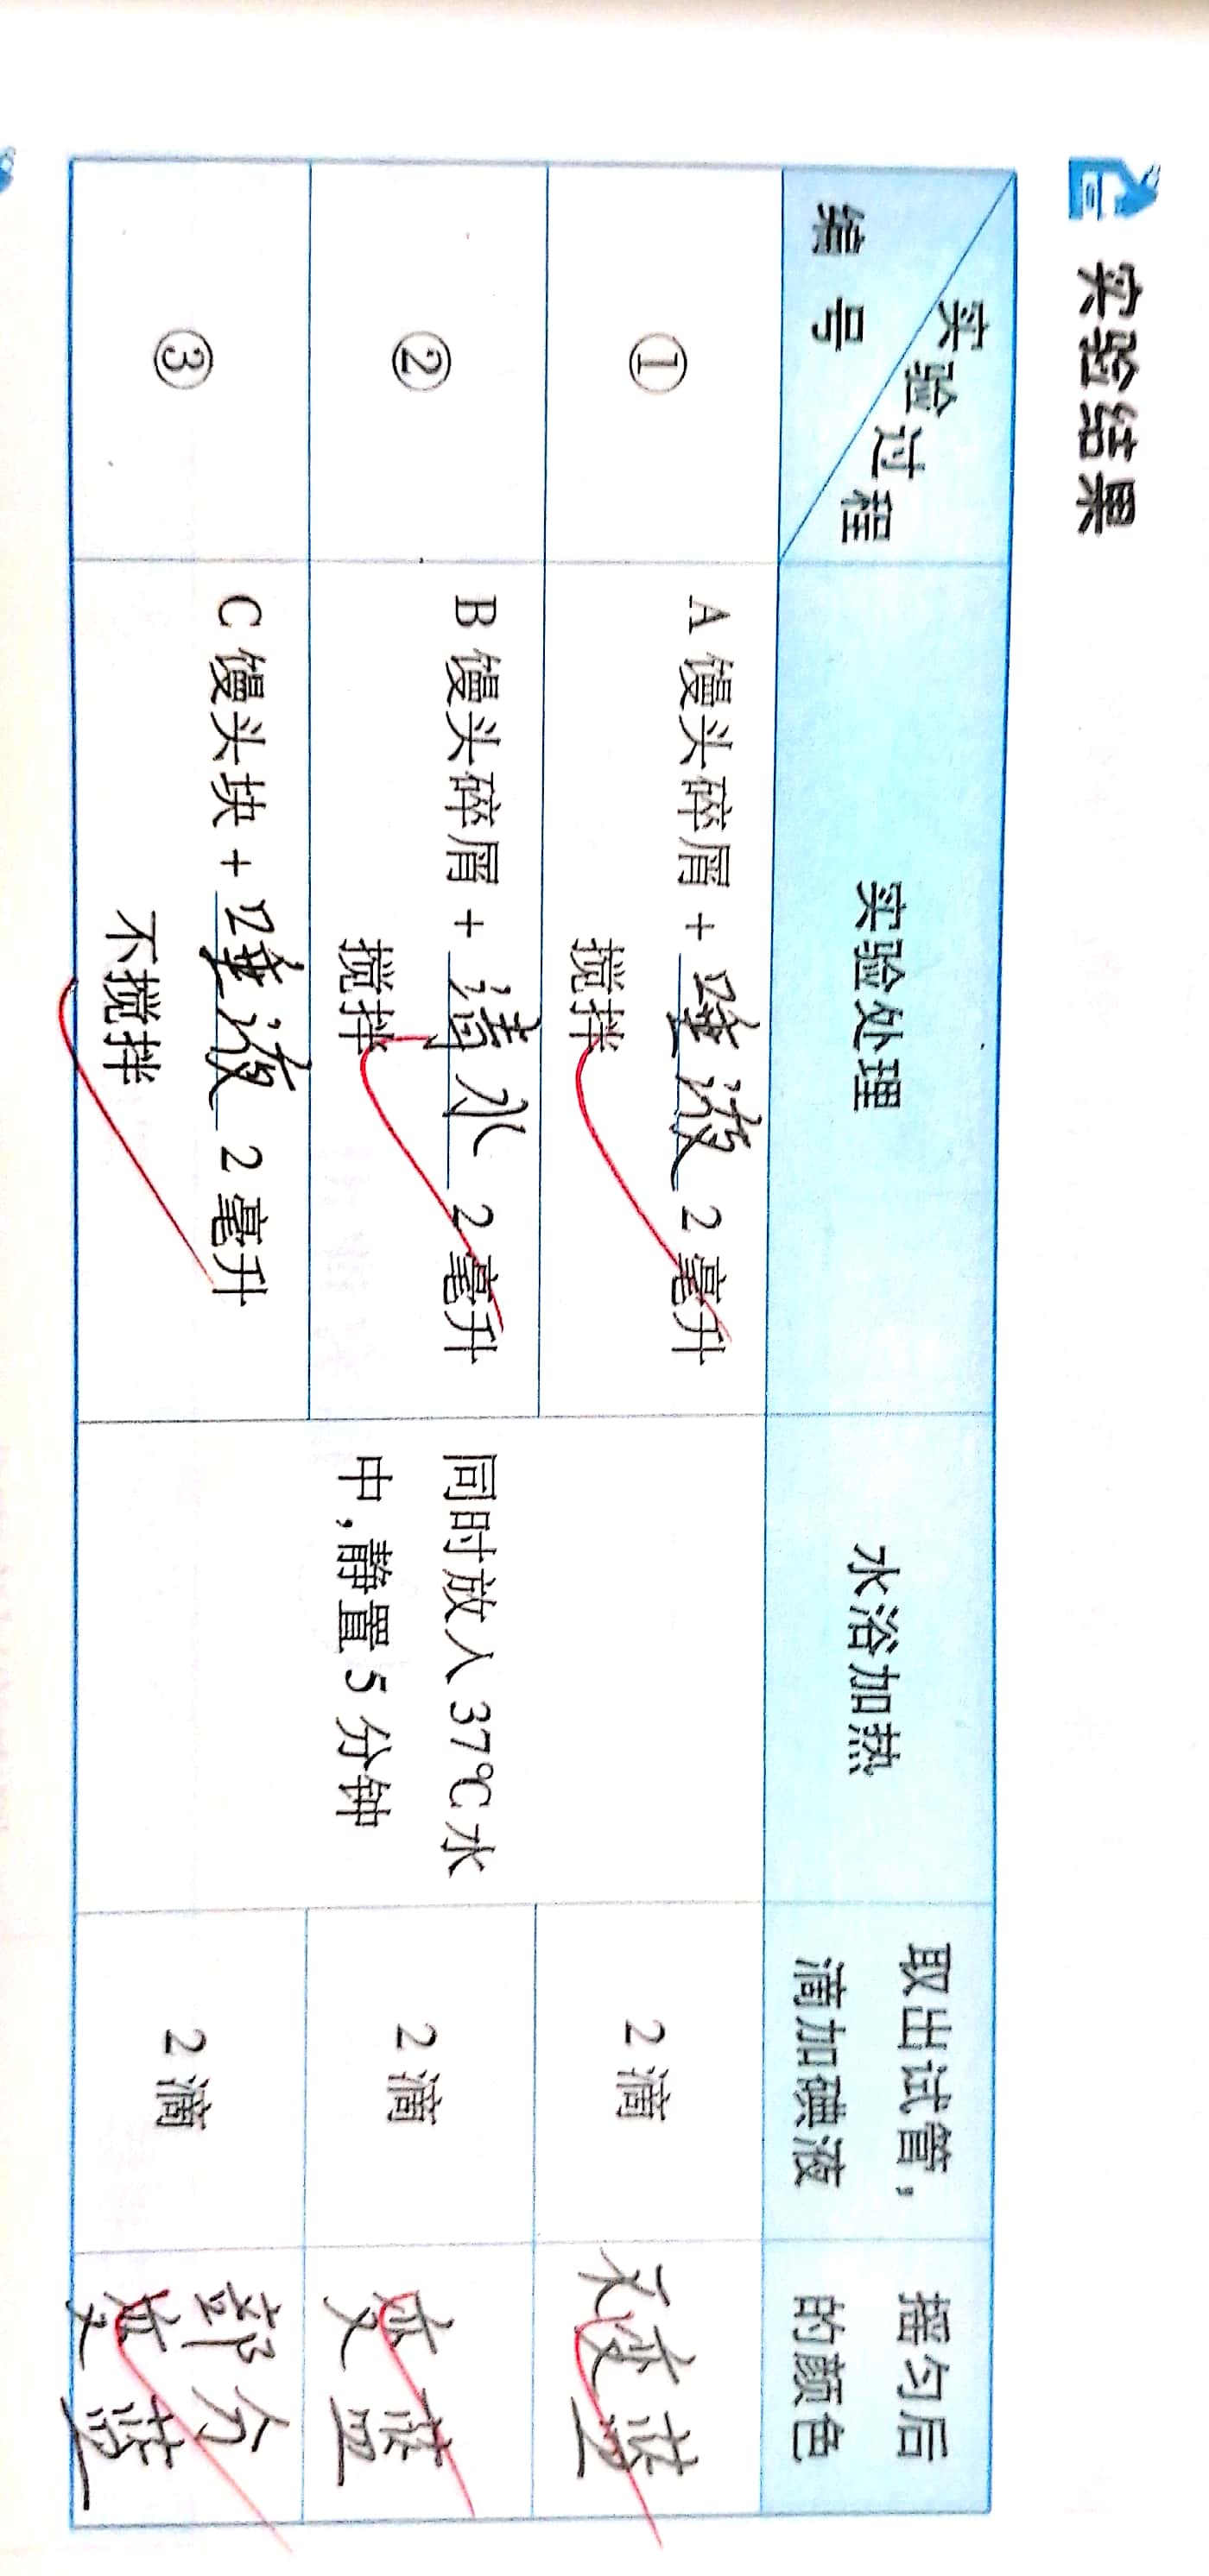 实验结果
实验过程
编号
实验处理
水浴加热
取出试管，
滴加碘液
摇匀后
的颜色
①
A 馒头碎屑 + 唾液 2 毫升
搅拌
同时放入37℃水
中，静置 5 分钟
2 滴
不变蓝
②
B 馒头碎屑 + 清水 2 毫升
搅拌
2 滴
变蓝
③
C 馒头块 + 唾液 2 毫升
不搅拌
2 滴
部分
变蓝